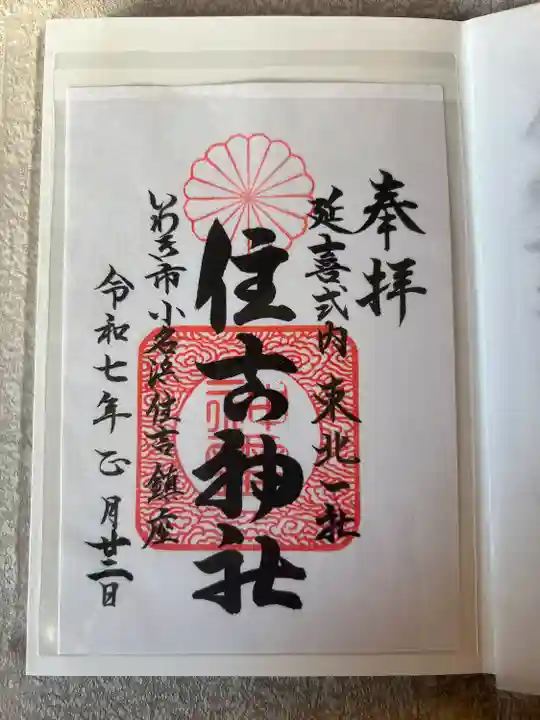 奉拝
延喜式内 東北一社
住吉神社
いわき市小名浜住吉鎮座
令和七年正月廿二日